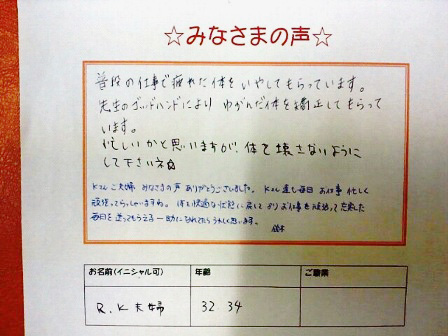 ☆みなさまの声☆
普段の仕事で疲れた体をいやしてもらっています。
先生のゴッドハンドにより ゆがんだ体を矯正してもらって
います。
忙しいかと思いますが、体を壊さないように
して下さいネ☆
Kさんご夫婦 みなさまの声 ありがとうございました。Kさん達も毎日 お仕事 忙しく
頑張ってらっしゃいますね。体も快適な状態に戻して よりお仕事を頑張って充実した
毎日を送ってもらえる一助になれてたらうれしく思います。
お名前(イニシャル可) 年齢 ご職業
R.K夫婦 32 34